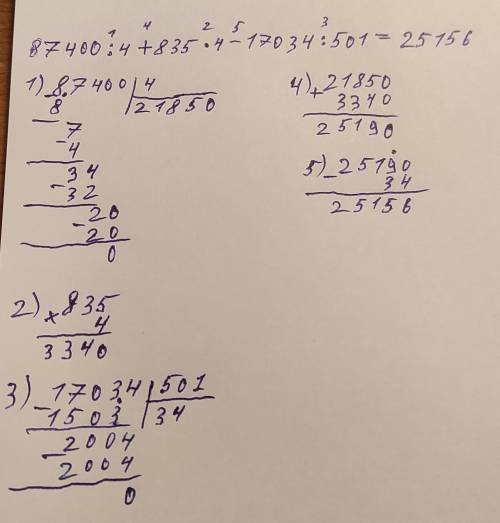 1 4 2 5 3
87400:4+835·4-17034:501=25156
1) 87400 | 4
- 8 | 21850
7
- 4
34
- 32
20
- 20
0
2) × 835
4
3340
3) - 17034 | 501
1503 | 34
- 2004
2004
0
4) + 21850
3340
25190
5) - 25190
34
25156